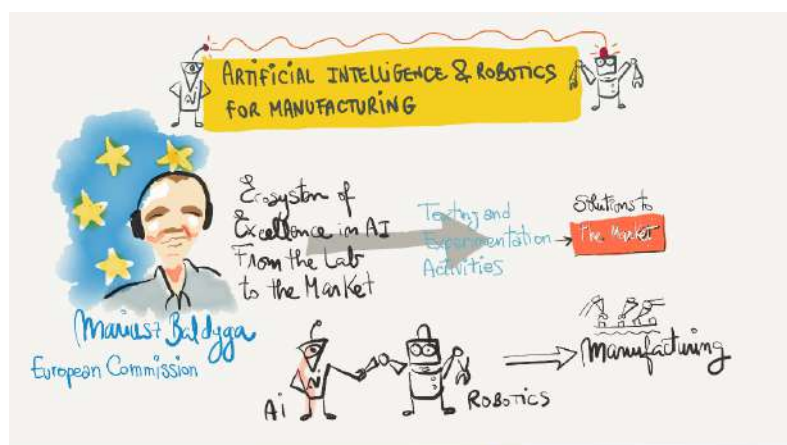 ARTIFICIAL INTELLIGENCE & ROBOTICS
FOR MANUFACTURING
Ecosystem of
Excellence in AI
From the Lab
to the Market
Testing and
Experimentation
Activities
Solutions to
The Market
Mariusz Baldyga
European Commission
Manufacturing
Ai
ROBOTICS